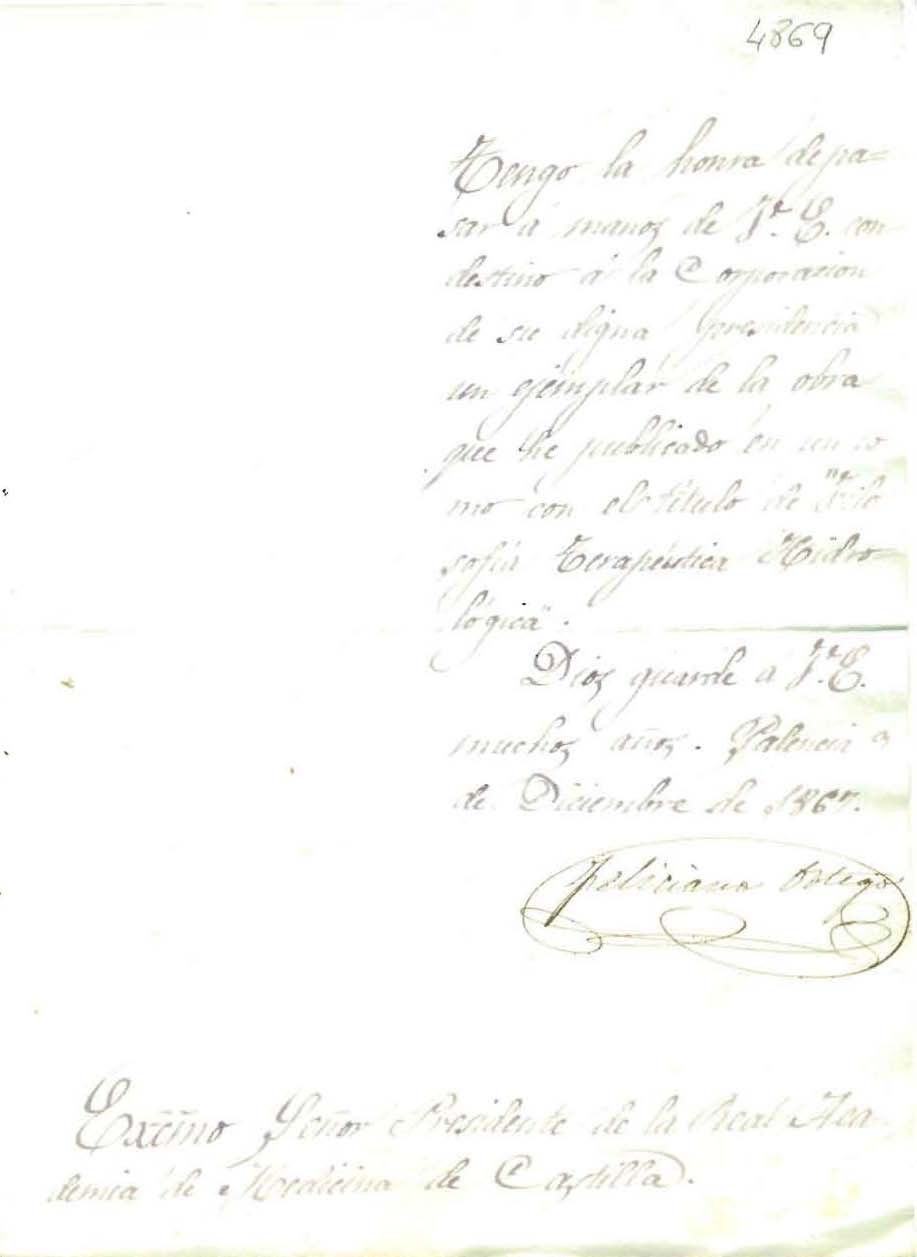 4869
Tengo la honra de pa=
sar á manos de V. E. con
destino á la Corporacion
de su digna presidencia
un ejemplar de la obra
que he publicado en un to
mo con el título de "Filo
sofía Terapéutica Hidro
lógica".
Dios guarde á V. E.
muchos años. Palencia
de Diciembre de 1867.
Feliciano Ortego
Excmo Señor Presidente de la Real Aca
demia de Medicina de Castilla.